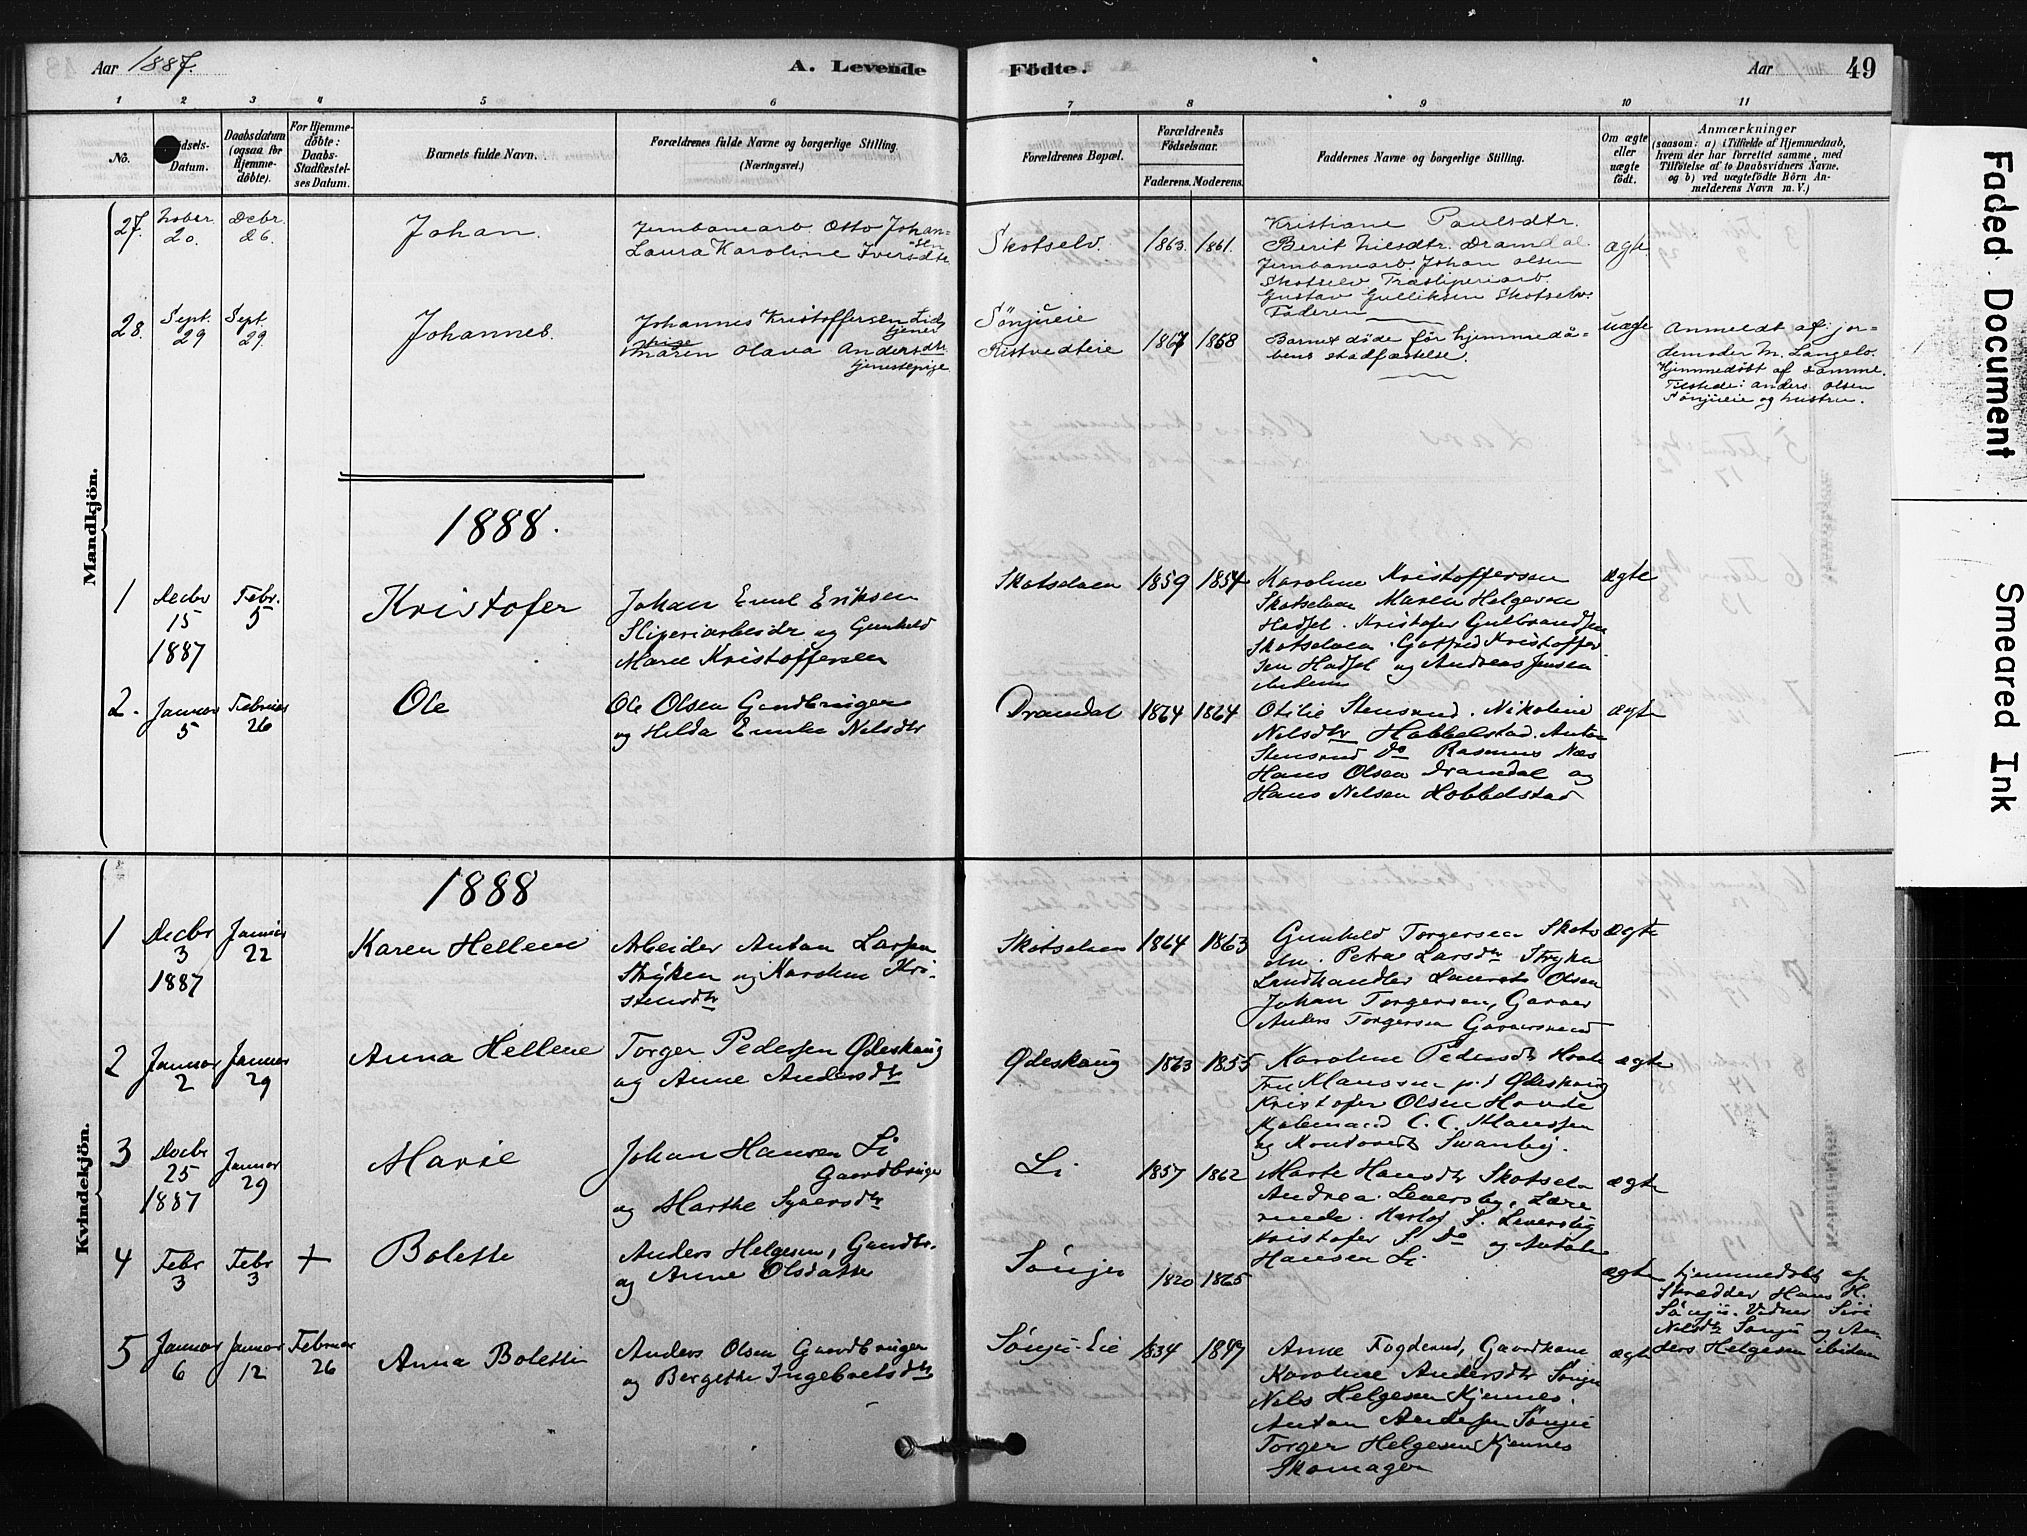 Aar 1887.
A. Levende
Födte.
Aar
49
1 2 3 4 5 6 7 8 9 10 11
No.
Datum.
Daabsdatum (ogsaa for Hjemmedøbte).
For Hjemmedøbte: Daabs-Stadfæstelses Datum.
Barnets fulde Navn.
Forældrenes fulde Navne og borgerlige Stilling. (Næringsvei.)
Forældrenes Bopæl.
Forældrenes Födselsaar.
Faderens. Moderens.
Faddernes Navne og borgerlige Stilling.
Om ægte eller uægte födt.
Anmærkninger
(saasom: a) i Tilfælde af Hjemmedaab,
hvem der har forrettet samme, med
Tilföielse af to Daabsvidners Navne.
og b) ved uægtefödte Börn Anmelderens Navn m. V.)
Mandkjön.
27.
20.
Decbr. 26.
Johan.
Jernbanearb. Otto Johan=
sen
Laura Karoline Iversdtr
Skotselv.
1863. 1861.
Kristiane Paulsdtr.
Berit Nilsdtr. Dramdal
Jernbanearb. Johan Olsen
Skotselv. Træsliperiarb.
Gustav Gulliksen Skotselv.
Faderen
ægte
28.
Sept. 29
Sept. 29
Johannes.
Johannes Kristoffersen
Maren Olava Andersdtr
tjenestepige
Sønjueie
Ristvedteie
1867 1868
Barnet døde før hjemmedå-
bens stadfæstelse.
uægte
Anmeldt af jor-
demoder M. Langelv.
Hjemmedøbt af samme.
Tilstede: Anders Olsen
Sønjueie og hustru.
1888.
1
Decbr 15 1887
Febr. 5
Kristofer
Johan Emil Eriksen
Sliperiarbeider og Gunhild
Marie Kristoffersen
Skotselven
1859 1854
Karoline Kristoffersen
Skotselven Maren Helgesen
Hadsel. Kristofer Gulbrandsen
Skotselven. Gotfred Kristoffer
sen Hadsel og Andreas Jensen
ægte
2.
Januar 5
Februar 26
Ole
Ole Olsen Gaardbruger
og Hilda Emilie Nilsdtr
Dramdal
1864 1864
Otilie Stensrud. Nikoline
Nilsdtr Hobbelstad. Anton
Stensrud Do Rasmus Næs
Hans Olsen Dramdal og
Hans Nilsen Hobbelstad
ægte
Kvindekjön.
1888
1
Decbr 3 1887
Januar 22
Karen Hellene
Arbeider Anton Larsen
Stryken og Karoline Kri-
stensdtr
Skotselven
1864 1863
Gunhild Torgersen Skots
elv. Petra Larsdtr Stryken
Landhandler Laurits Olsen
Johan Torgersen, Garver
Anders Torgersen Garversvend
ægte
2
Januar 2
Januar 29
Anna Hellene
Torger Pedersen Ødeskaug
og Anne Andersdtr
Ødeskaug
1863 1855
Karoline Pedersdtr
Fru Klanssen p.t Ødeskaug
Kristofer Olsen Hovde
C. C.
og
ægte
3
Decbr 25 1887
Januar 29
Marie
Johan Hansen Li
Gaardbruger
og Marthe Syversdtr
Li
1857 1862
Marte Hansdtr Skotselv
Andrea Leversby,
Kristofer S. Do og Anton
Hansen Li
ægte
4
Febr 3
Febr 3
+
Bolette
Anders Helgesen, Gaardbr.
og Anne Olsdatter
Sønju
1820 1865
ægte
Hjemmedøbt af
Skrædder Hans H.
Sønju. Vidner Siri
Nilsdtr Sønju og An
ders Helgesen ibidem
5
Januar 6
Januar 12
Februar 26
Anna Bolette
Anders Olsen Gaardbruger
og Bergethe Ingebretsdtr
Sønju-Eie
1834 1847
Anne Fogderud, Gaardkone
Karoline Andersdtr Sønju
Nils Helgesen Kjennes.
Anton Andersen Sønju
Torger Helgesen Kjennes
Skomager
ægte
Faded Document
Smeared Ink